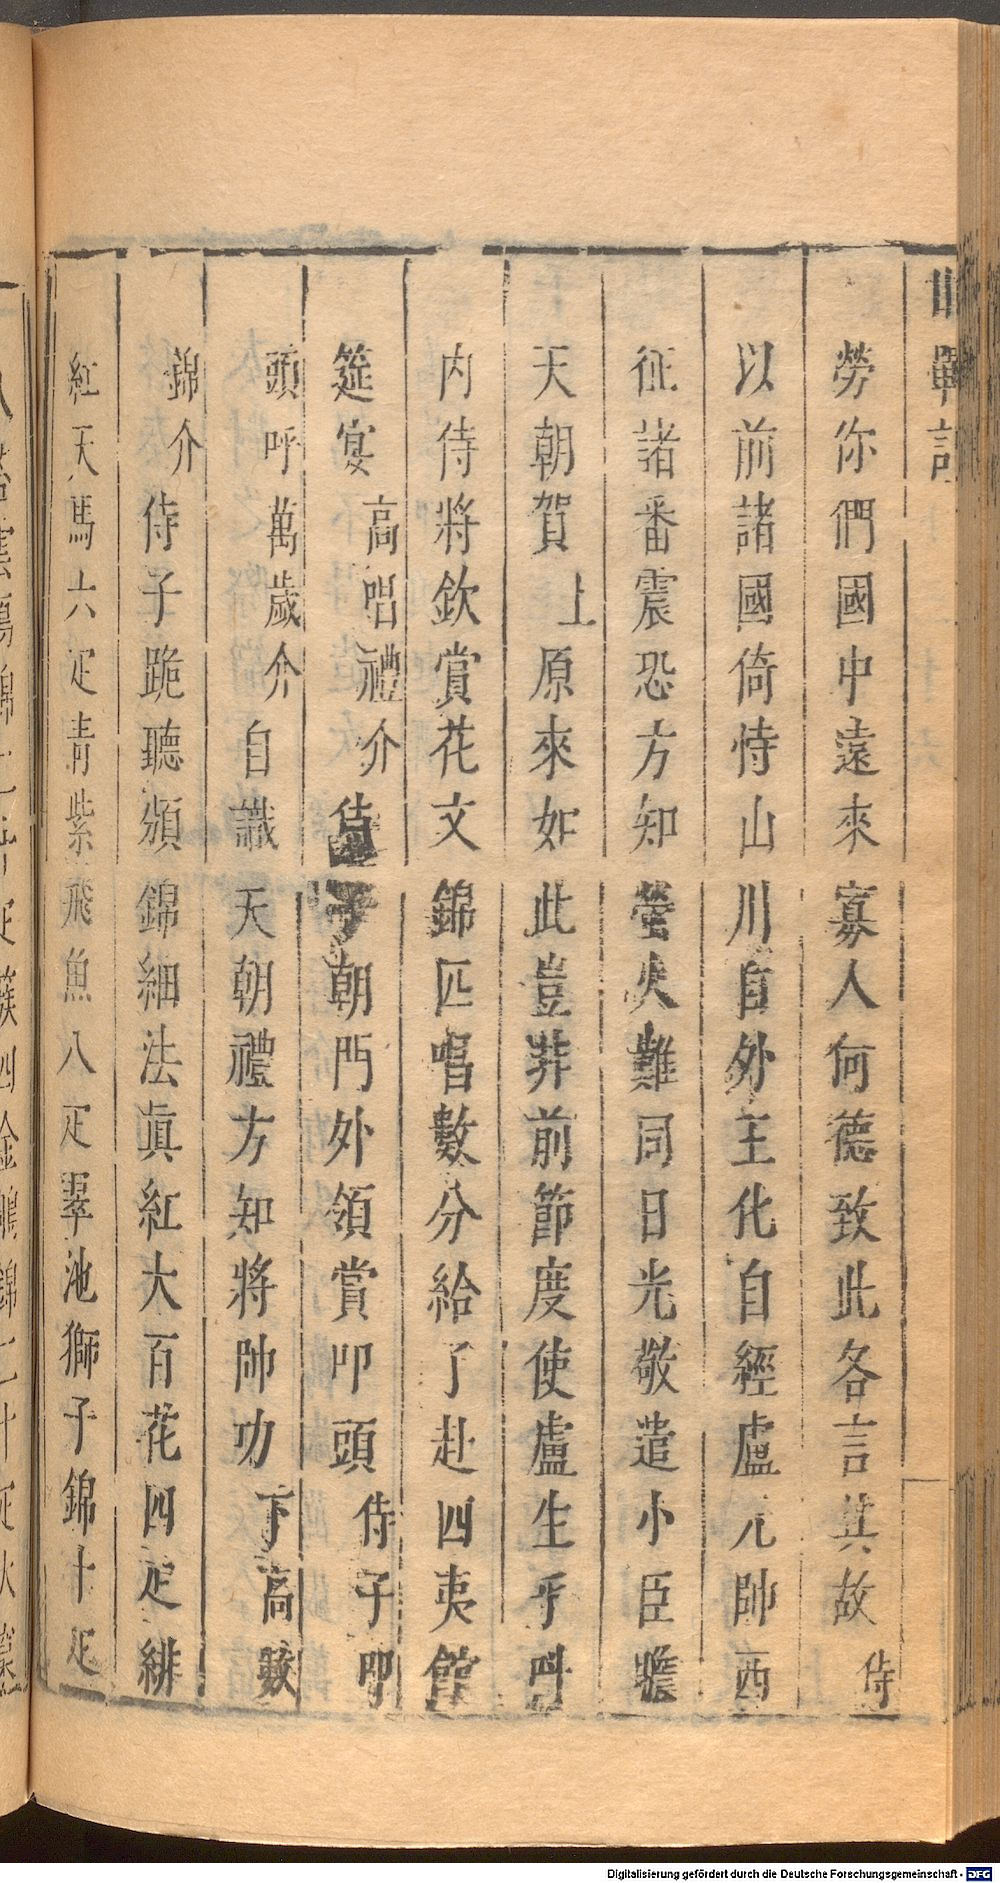 勞你們國中遠來寡人何德致此各言其故侍
以前諸國倚恃山川自外王化自經盧元帥西
征諸番震恐方知螢火難同日光敬遣小臣瞻
天朝賀上原來如此豈非前節度使盧生乎叫
內侍將欽賞花文錦匹唱數分給了赴四夷館
筵宴高唱禮介侍子朝門外領賞叩頭侍子叩
頭呼萬歲介自識天朝禮方知將帥功下高簇
錦介侍子跪聽頒錦細法眞紅大百花四疋緋
紅天馬六疋青紫飛魚八疋翠池獅子錦十疋
Digitalisierung gefördert durch die Deutsche Forschungsgemeinschaft - DFG